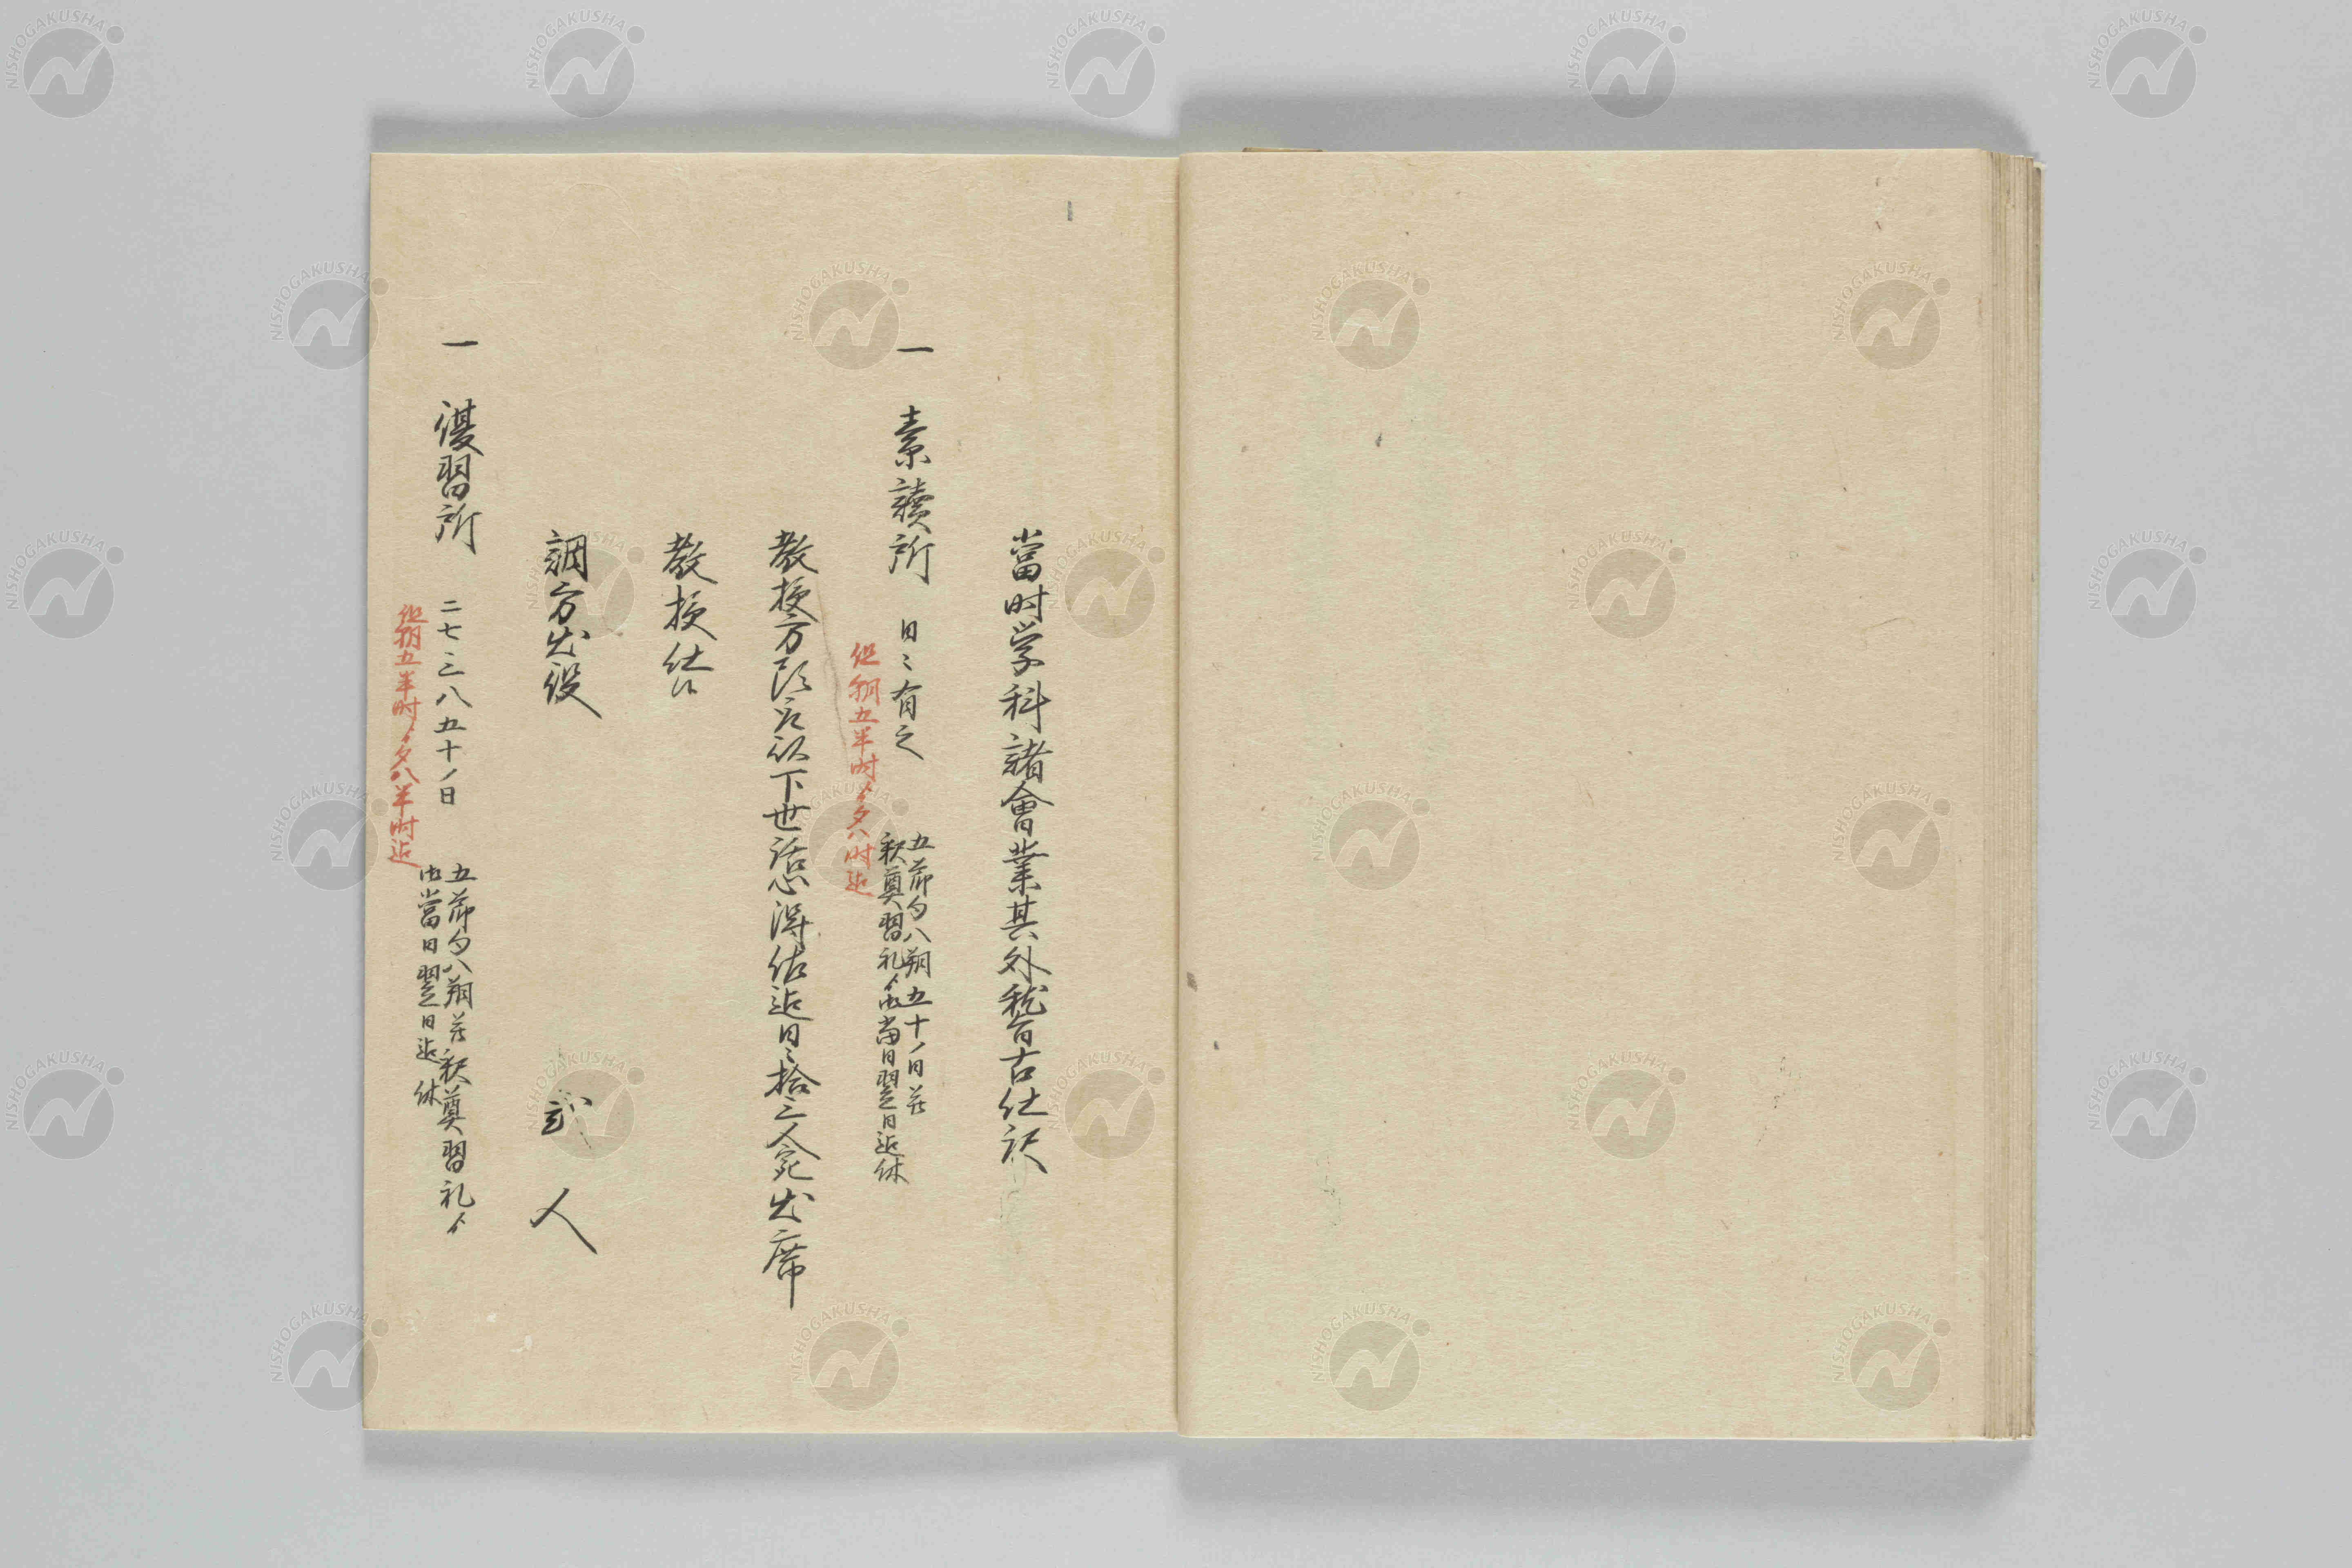 當时学科諸會業其外稽古仕訳
一 素讀所 日々有之
五節句八朔五十ノ日并
釈奠習礼ゟ當日翌日迠休
但朝五半时ゟ夕八时迠
教授方頭取以下世話心得佐迠日々拾三人宛出席
教授仕候
調方出役 弐人
一 復習所 二七三八五十ノ日
五節句八朔并釈奠習礼ゟ
當日翌日迠休
但朝五半时ゟ夕八半时迠
NISHOGAKUSHA